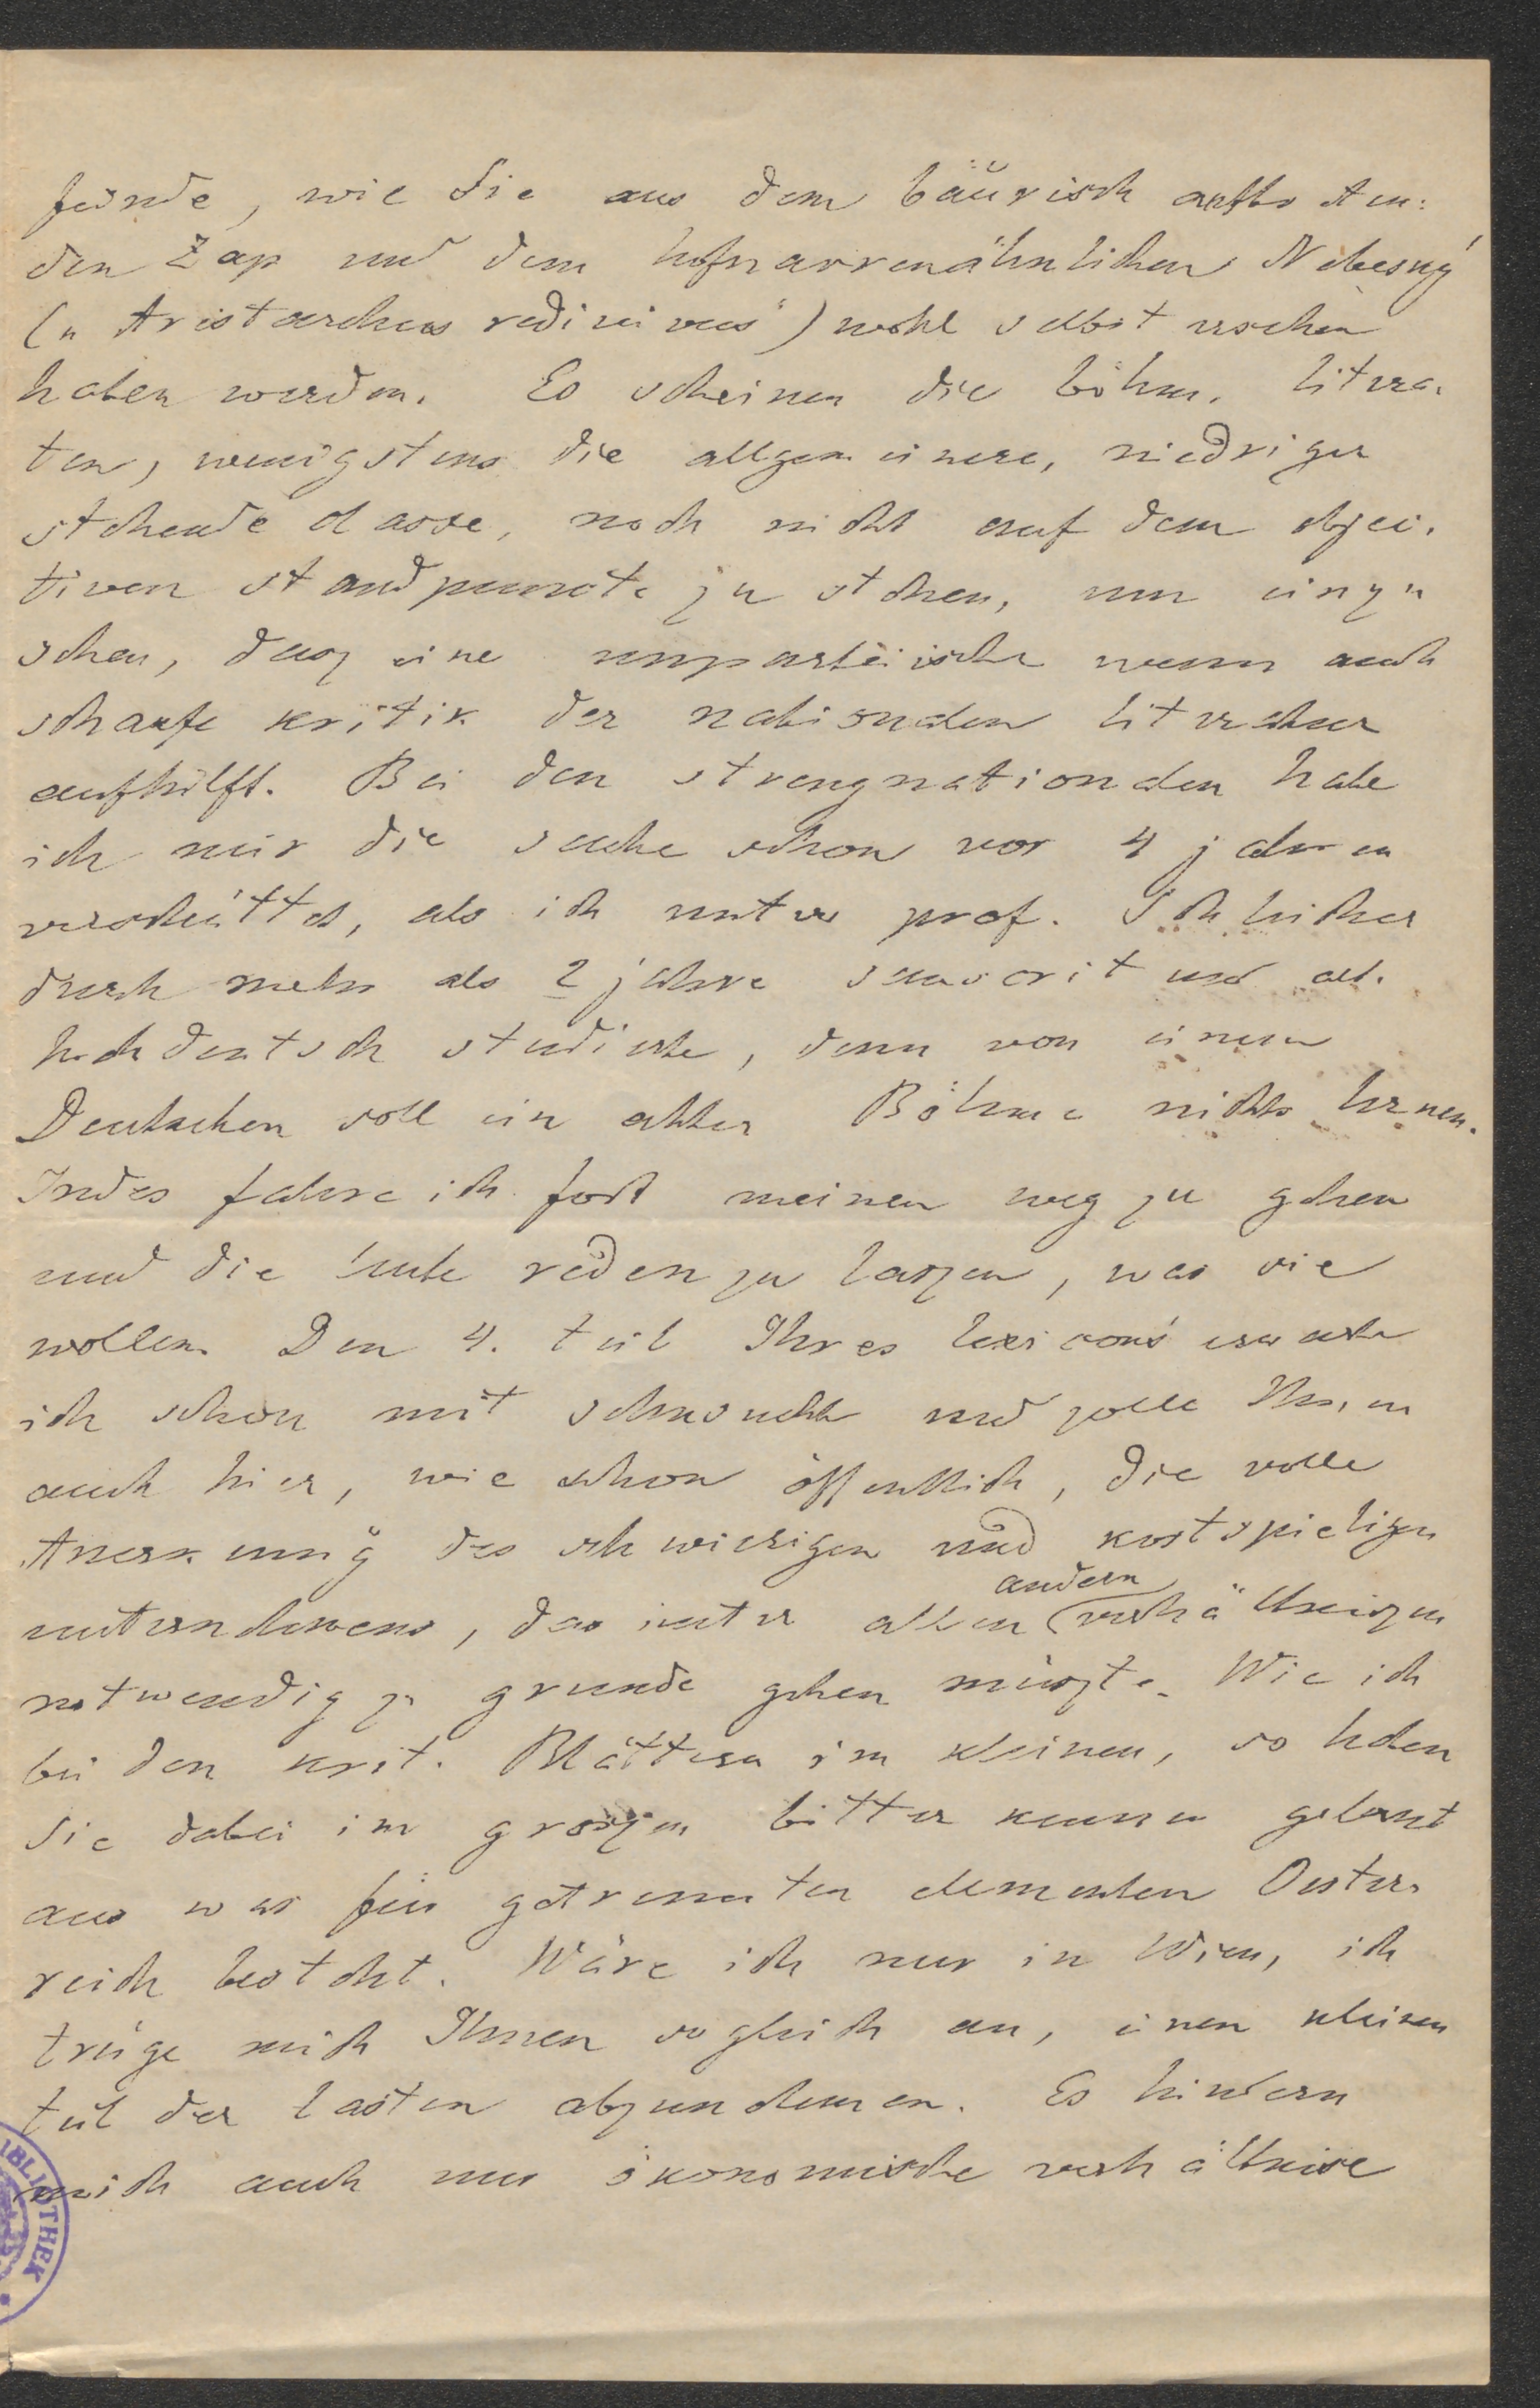 feinde, wie Sie aus dem bäurisch auftreten-
den Zap und dem hofnarrenähnlichen Nebeský
(„Aristarchus redivivus“) wohl selbst ersehen
haben werden. Es scheinen die böhm. litera-
ten, wenigstens die allgemeinere, niedriger
stehende classe, noch nicht auf dem objec-
tiven standpuncte zu stehen, um einzu
sehen, dasz eine unparteiische wenn auch
scharfe kritik der nationalen literatur
aufhilft. Bei den strengnationalen habe
ich mir die sache schon vor 4 jahren
verschüttet, als ich unter prof. Schleicher
durch mehr als 2 jahre sanscrit und alt-
hochdeutsch studierte, denn von einem
Deutschen soll ein echter Böhme nichts lernen.
Indes fahre ich fort meinen weg zu gehen
und die leute reden zu laszen, was sie
wollen. Den 4. teil Ihres lexicons erwarte
ich schon mit sehnsucht und zolle Ihnen
auch hier, wie schon öffentlich, die volle
Anerkennung des schwierigen und kostspieligen
unternehmens, das unter allen andern verhältniszen
notwendig zu grunde gehen müszte. Wie ich
bei den krit. Blättern im kleinen, so haben
Sie dabei im groszen bitter kennen gelernt
aus was für getrennten elementen Oester-
reich besteht. Wäre ich nur in Wien, ich
trüge mich Ihnen sogleich an, einen kleinen
teil der lasten abzunehmen. Es hindern
mich auch nur ökonomische verhältnisse
BIBLIOTHEK